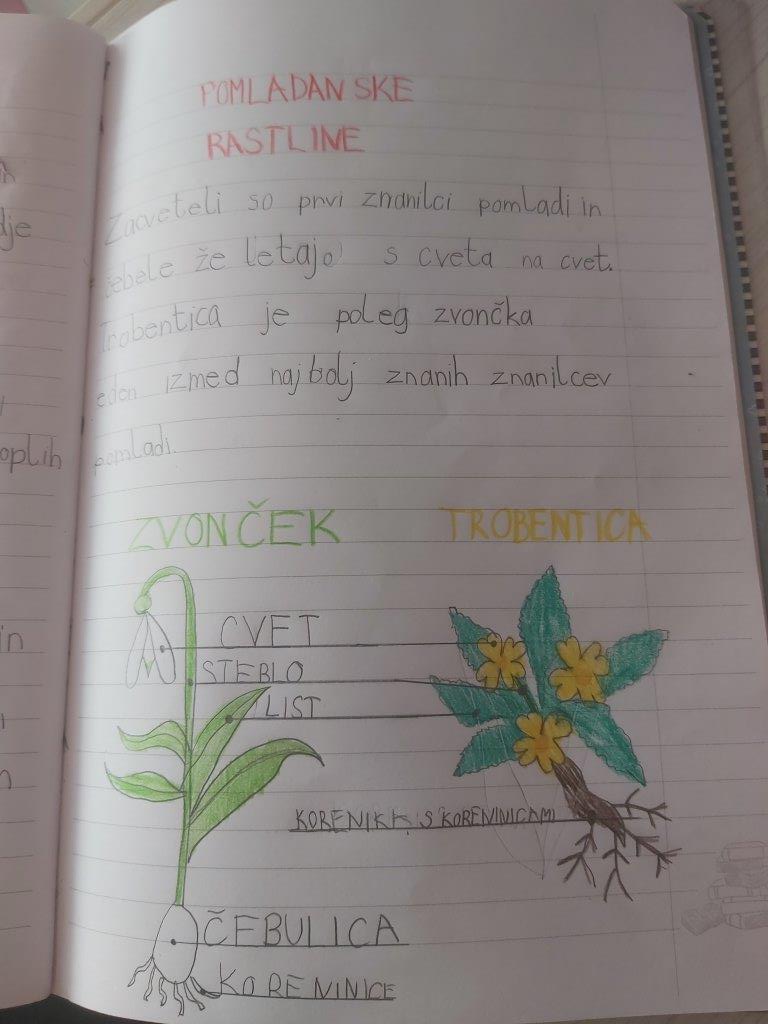 POMLADANSKE
RASTLINE
Zacveteli so prvi znanilci pomladi in
čebele že letajo s cveta na cvet.
Trobentica je poleg zvončka
eden izmed najbolj znanih znanilcev
pomladi.
ZVONČEK
TROBENTICA
CVET
STEBLO
LIST
KORENIKA S KORENINICAMI
ČEBULICA
KORENINICE
dje
oplih
in